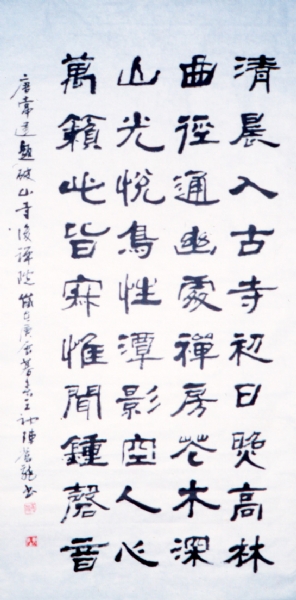 清晨入古寺初日照高林
曲徑通幽處禪房花木深
山光悅鳥性潭影空人心
萬籟此皆寂惟聞鍾磬音
唐常建題破山寺後禪院